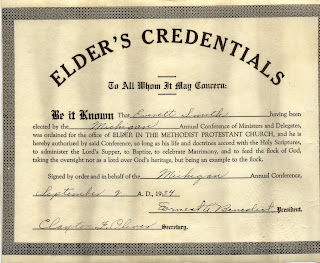 ELDER'S CREDENTIALS
To All Whom It May Concern:
Be it Known That Everett Smith having been
elected by the Michigan Annual Conference of Ministers and Delegates,
was ordained for the office of ELDER IN THE METHODIST PROTESTANT CHURCH, and he is
hereby authorized by said Conference, so long as his life and doctrines accord with the Holy Scriptures,
to administer the Lord's Supper, to Baptize, to celebrate Matrimony, and to feed the flock of God,
taking the oversight not as a lord over God's heritage, but being an example to the flock.
Signed by order and in behalf of the Michigan Annual Conference,
September 2 A. D., 1934
Ernest A Benedict President.
Clayton Secretary.